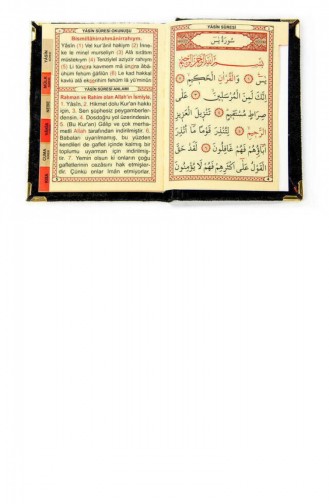 YÂSÎN SÛRESİ OKUNUŞU
Bismillâhirrahmânirrahıym.
Yâsîn (1) Vel kur'ânil hakiym (2) İnne-
ke le minel murseliyn (3) Alâ sırâtım
müstekıym (4) Tenziylel aziyzir rahıym
(5) Li tünzira kavmem mâ ünzira âbâ-
ühüm fehüm ğâfilûn (6) Le kad hakkal
kavlü alâ ekserihim fehüm lâ yü'minûn
YÂSÎN SÛRESİ ANLAMI
Rahman ve Rahim olan Allah'ın İsmiyle.
1. Yâsîn, 2. Hikmet dolu Kur'an hakkı
için, 3. Sen şüphesiz peygamberler-
densin. 4. Dosdoğru yol üzerindesin.
5. (Bu Kur'an) Gâlip ve çok merha-
metli Allah tarafından indirilmiştir. 6.
Babaları uyarılmamış, bu yüzden
kendileri de gaflet içinde kalmış bir
toplumu uyarman için indirilmiş-
tir. 7. Yemin olsun ki onların çoğu
gafletlerinin cezâsını hak etmişler-
dir. Çünkü onlar îmân etmiyorlar.
YÂSÎN
CUMA
YÂSÎN SÛRESİ
سُورَةُ يٰسٓ
بِسْمِ اللّٰهِ الرَّحْمٰنِ الرَّحِيمِ
يٰسٓ ﴿١﴾ وَالْقُرْاٰنِ الْحَكِيمِ ﴿٢﴾
اِنَّكَ لَمِنَ الْمُرْسَلِينَ ﴿٣﴾ عَلٰى
صِرَاطٍ مُسْتَقِيمٍ ﴿٤﴾ تَنْزِيلَ الْعَزِيزِ
الرَّحِيمِ ﴿٥﴾ لِتُنْذِرَ قَوْمًا مَٓا اُنْذِرَ
اٰبَٓاؤُهُمْ فَهُمْ غَافِلُونَ ﴿٦﴾ لَقَدْ حَقَّ
الْقَوْلُ عَلٰٓى اَكْثَرِهِمْ فَهُمْ لَا يُؤْمِنُونَ